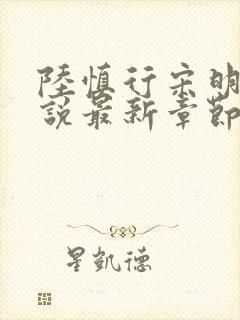 陸慎行宋明
說最新章節
星凱德